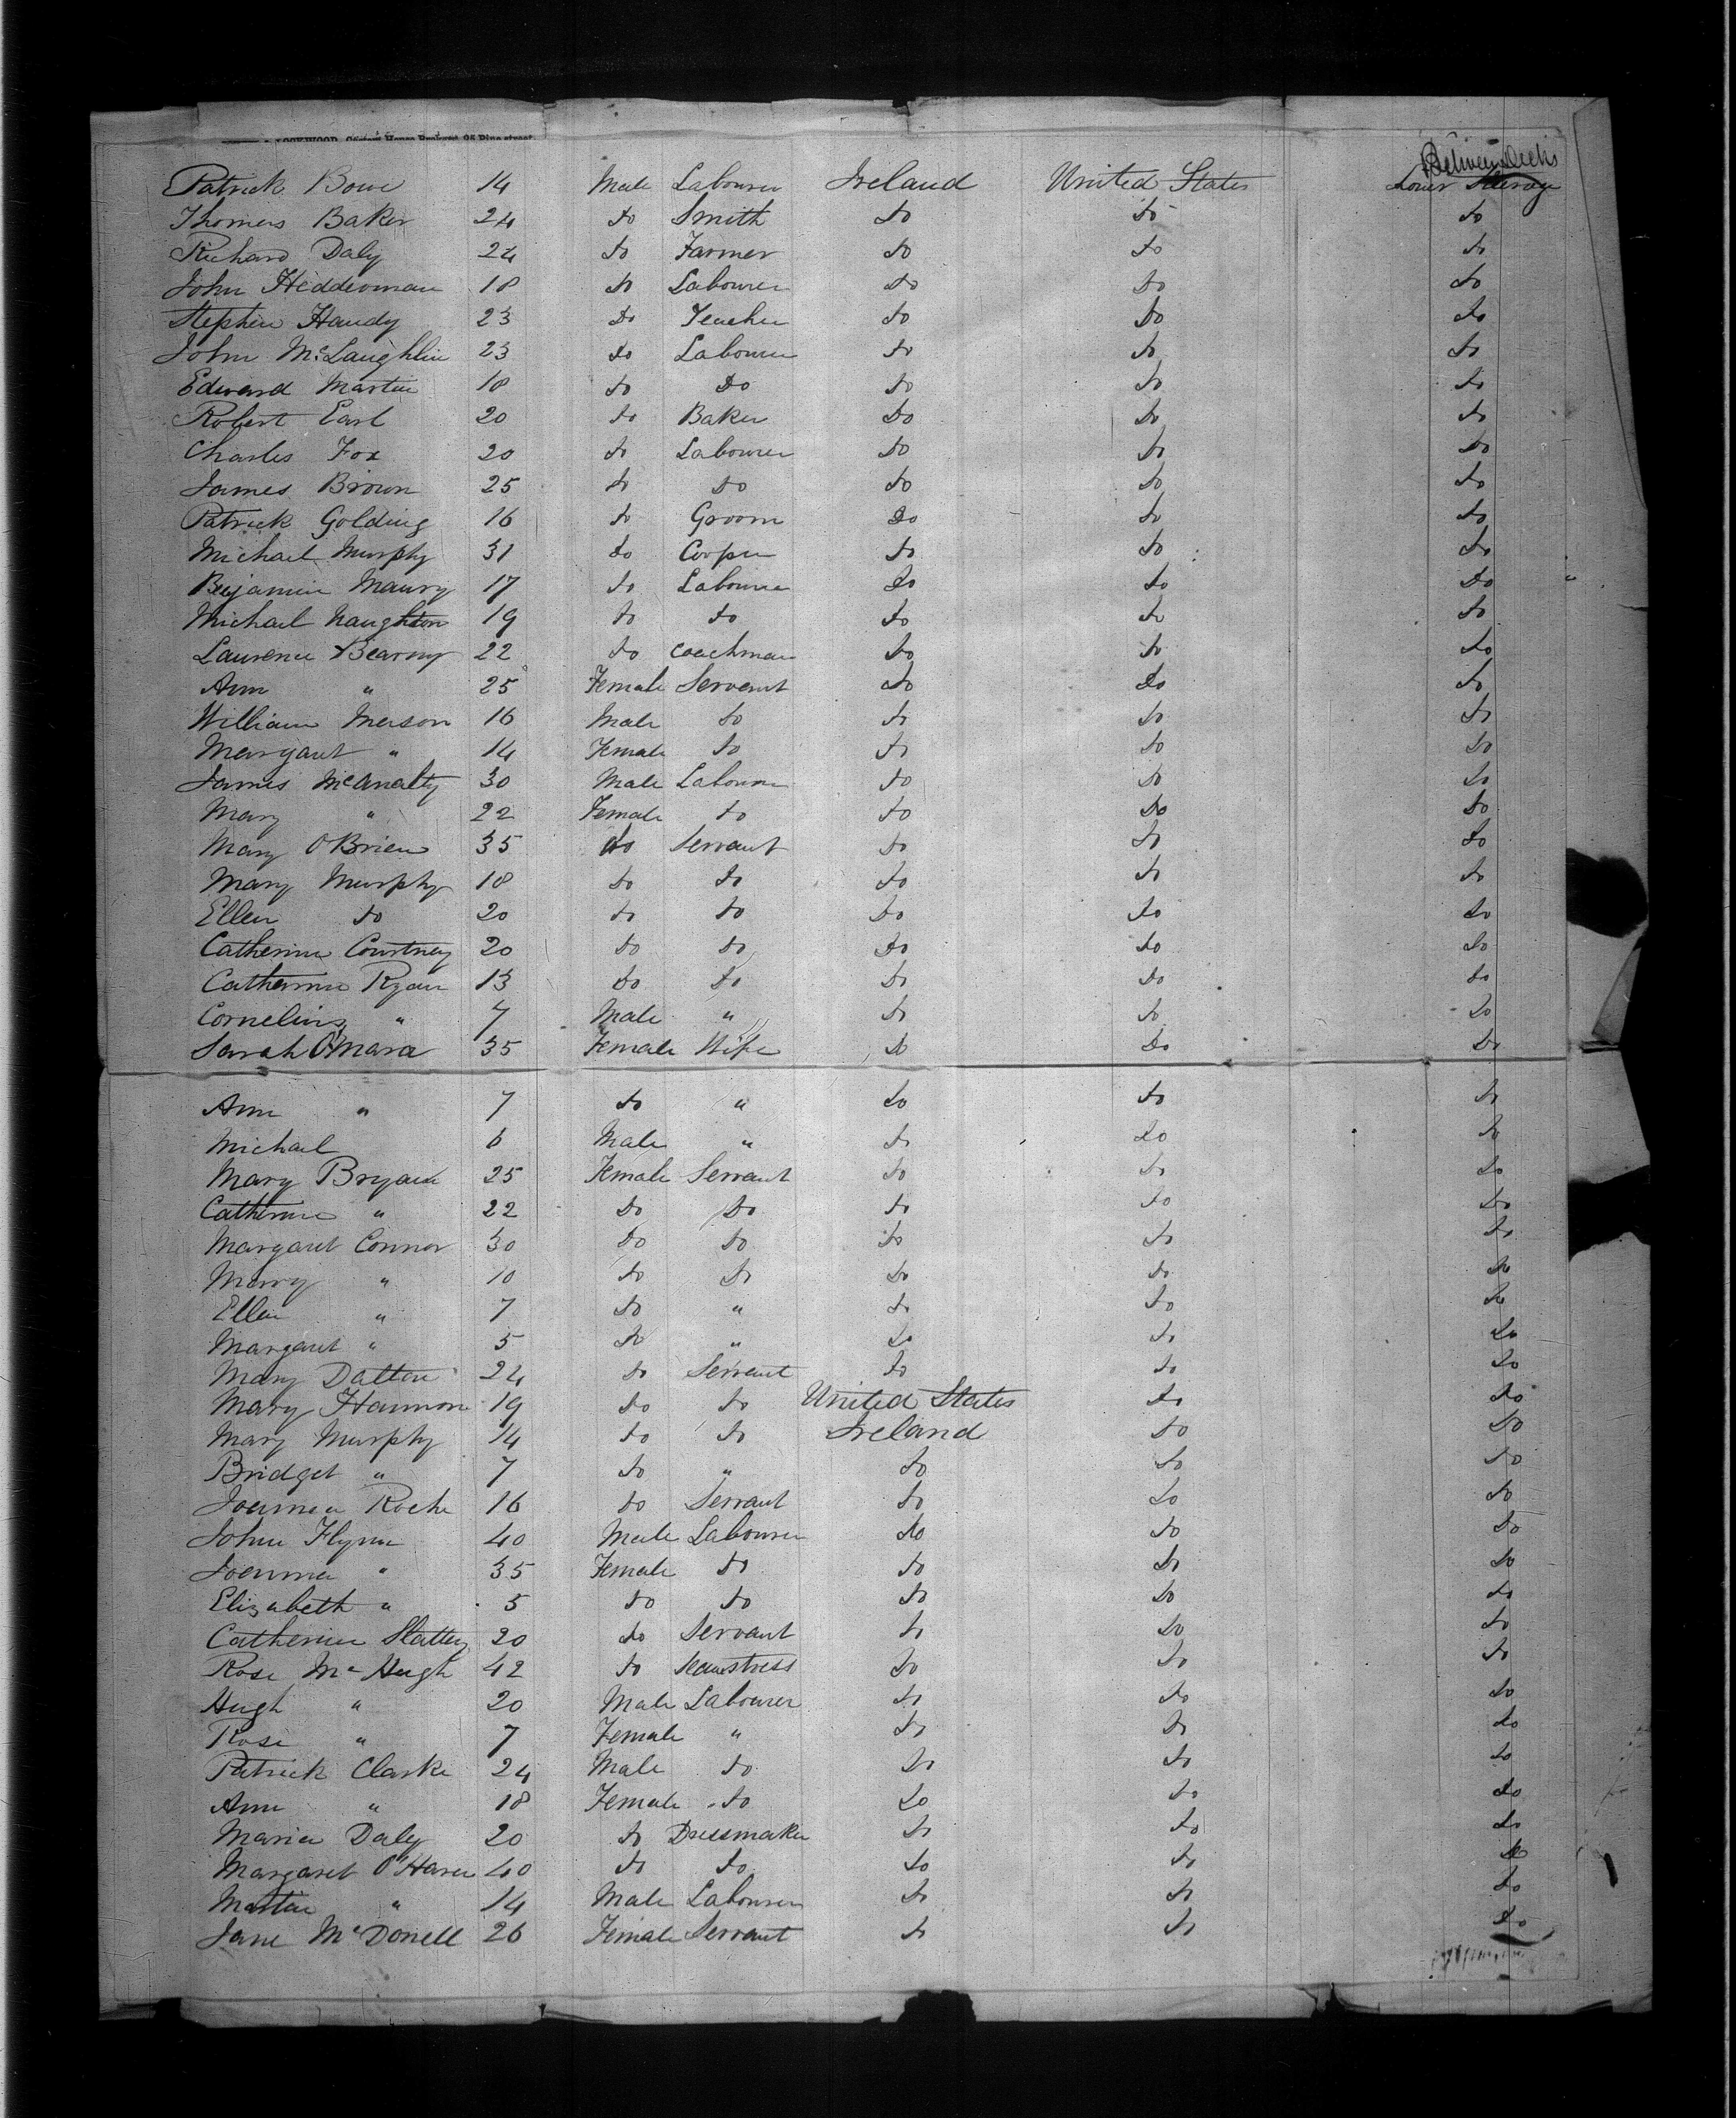 LOCKWOOD, Custom House Brokers, 95 Pine street.
Between Decks
Patrick Bowe 14 Male Labourer Ireland United States Lower Steerage
Thomas Baker 24 do Smith do do do
Richard Daly 24 do Farmer do do do
John Heddeoman 18 do Labourer do do do
Stephen Handy 23 do Teacher do do do
John McLaughlin 23 do Labourer do do do
Edward Martin 18 do do do do do
Robert Earl 20 do Baker do do do
Charles Fox 20 do Labourer do do do
James Brown 25 do do do do do
Patrick Golding 16 do Groom do do do
Michael Murphy 31 do Cooper do do do
Benjamin Maury 17 do Labourer do do do
Michael Naughton 19 do do do do do
Laurence Bearny 22 do Coachman do do do
Ann " 25 Female Servant do do do
William Merson 16 Male do do do do
Margaret " 14 Female do do do do
James McAnalty 30 Male Labourer do do do
Mary " 22 Female do do do do
Mary O'Brien 35 do Servant do do do
Mary Murphy 18 do do do do do
Ellen do 20 do do do do do
Catherine Courtney 20 do do do do do
Catherine Ryan 13 do do do do do
Cornelius " 7 Male " do do do
Sarah O'Mara 35 Female Wife do do do
Ann " 7 do " do do do
Michael 6 Male " do do do
Mary Bryan 25 Female Servant do do do
Catherine " 22 do do do do do
Margaret Connor 30 do do do do do
Mary " 10 do do do do do
Ellen " 7 do " do do do
Margaret " 5 do " do do do
Mary Dalton 24 do Servant do do do
Mary Hannon 19 do do United States do do
Mary Murphy 14 do do Ireland do do
Bridget " 7 do " do do do
Joanna Roche 16 do Servant do do do
John Flynn 40 Male Labourer do do do
Joanna " 35 Female do do do do
Elizabeth " 5 do do do do do
Catherine Slattery 20 do Servant do do do
Rose McHugh 42 do Seamstress do do do
Hugh " 20 Male Labourer do do do
Rose " 7 Female " do do do
Patrick Clarke 24 Male do do do do
Ann " 18 Female do do do do
Maria Daly 20 do Dressmaker do do do
Margaret O'Hara 40 do do do do do
Martin " 14 Male Labourer do do do
Jane McDonell 26 Female Servant do do do